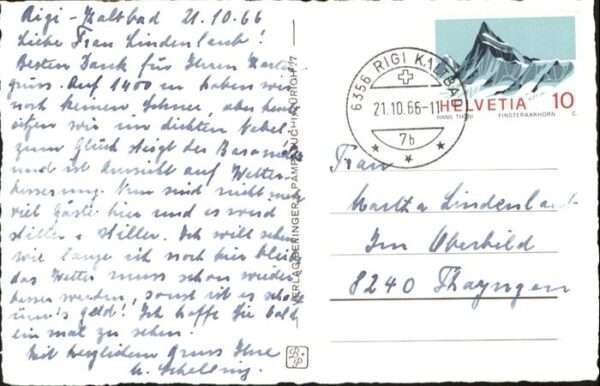 Rigi-Kaltbad 21.10.66
Liebe Frau Lindenlaub!
Besten Dank für Ihren Karten
gruss. Auf 1400 m haben wir
noch keinen Schnee, aber heute
sitzen wir im dichten Nebel
zum Glück steigt der Barometer
und ist Aussicht auf Wetter-
besserung. Nun sind nicht mehr
viel Gäste hier und es wird
stiller & stiller. Ich will sehen
wie lange ich noch hier bleibe
das Wetter muss schon wieder
besser werden, sonst ist es schade
um's Geld! Ich hoffe Sie bald
einmal zu sehen.
Mit herzlichem Gruss Ihre
U. Schelling.
6356 RIGI KALTBAD
21.10.66-11
7b
HELVETIA 10
HANS THÖNI FINSTERAARHORN
Frau
Martha Lindenlaub
Im Oberbild
8240 Thayngen